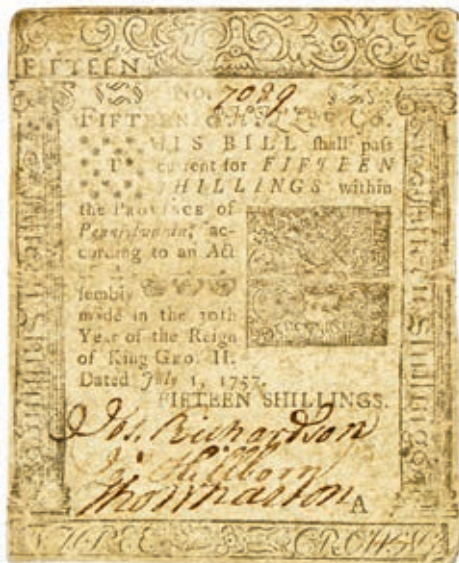 FIFTEEN
No. 7089
FIFTEEN
THIS BILL shall pass
current for FIFTEEN
SHILLINGS within
the PROVINCE of
Pennsylvania, ac-
cording to an Act
sembly
made in the 30th
Year of the Reign
of King GEO. II.
Dated July 1, 1757.
FIFTEEN SHILLINGS.
Jos. Richardson
Hillborn
Tho Wharton
A
THREE CROWNS